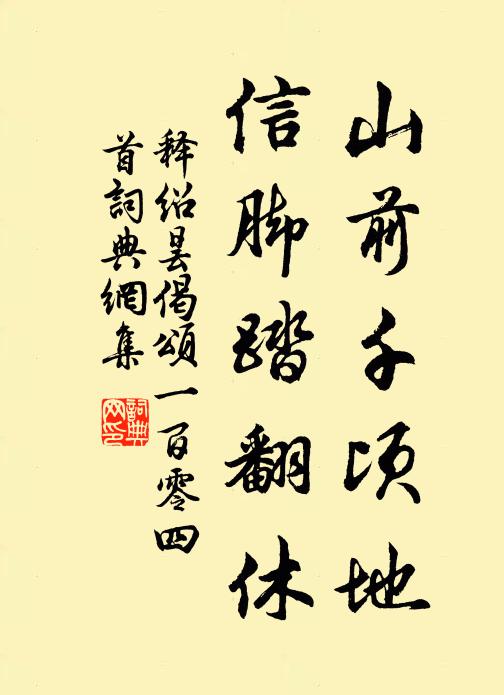 山前千顷地
信脚踏翻休
释绍昙偈頌一百零四
首詞典網集
詞典
网印